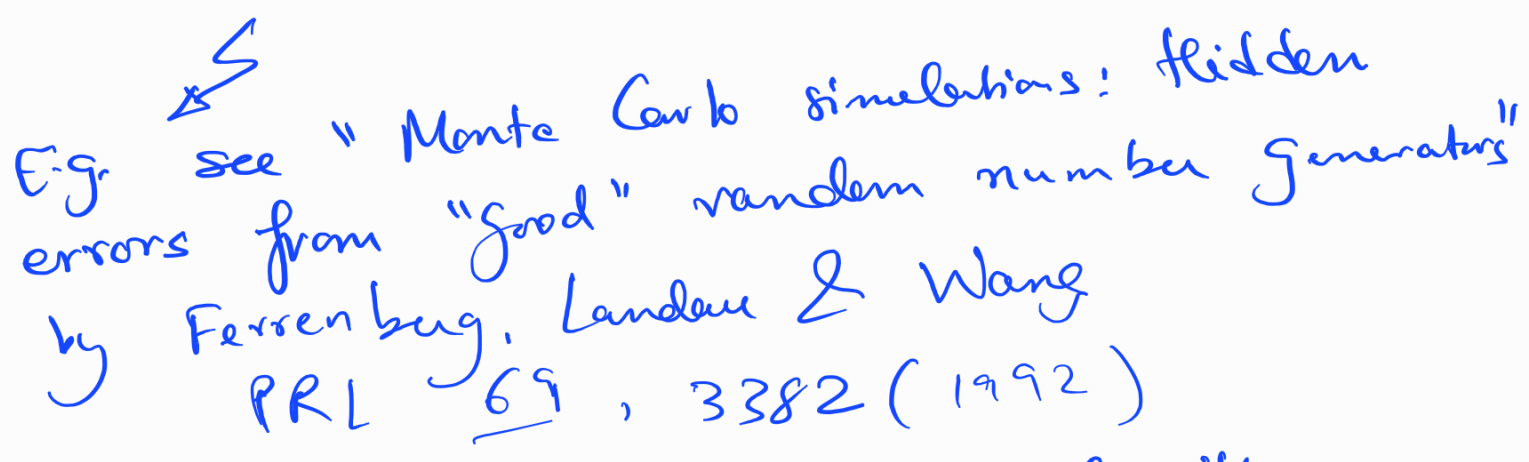 E.g. see "Monte Carlo simulations: Hidden
errors from "good" random number generators"
by Ferrenberg, Landau & Wang
PRL 69, 3382 (1992)